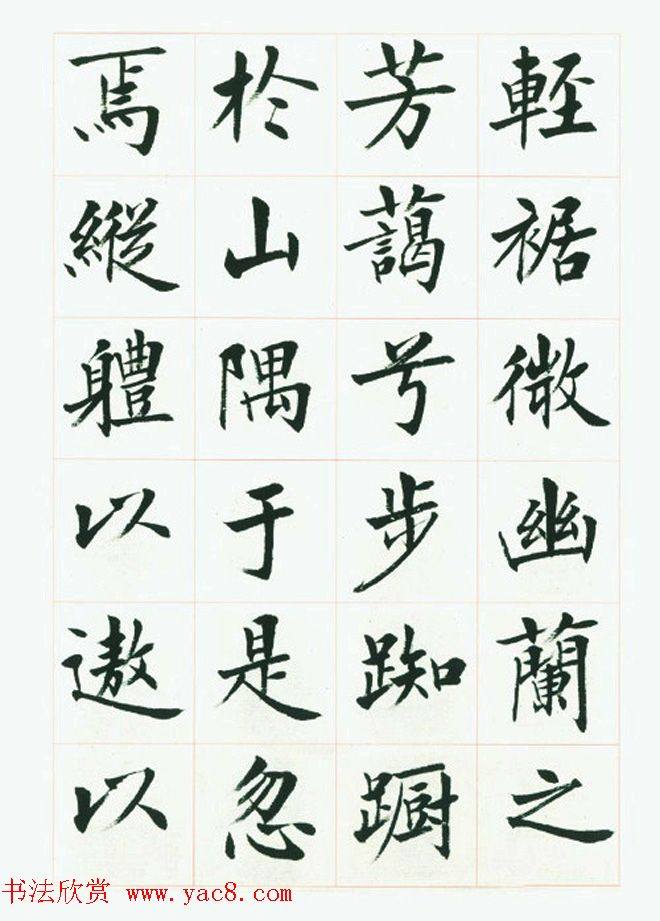 輕裾微幽蘭之
芳藹兮步踟蹰
於山隅于是忽
焉縱軆以遨以
书法欣赏 www.yac8.com